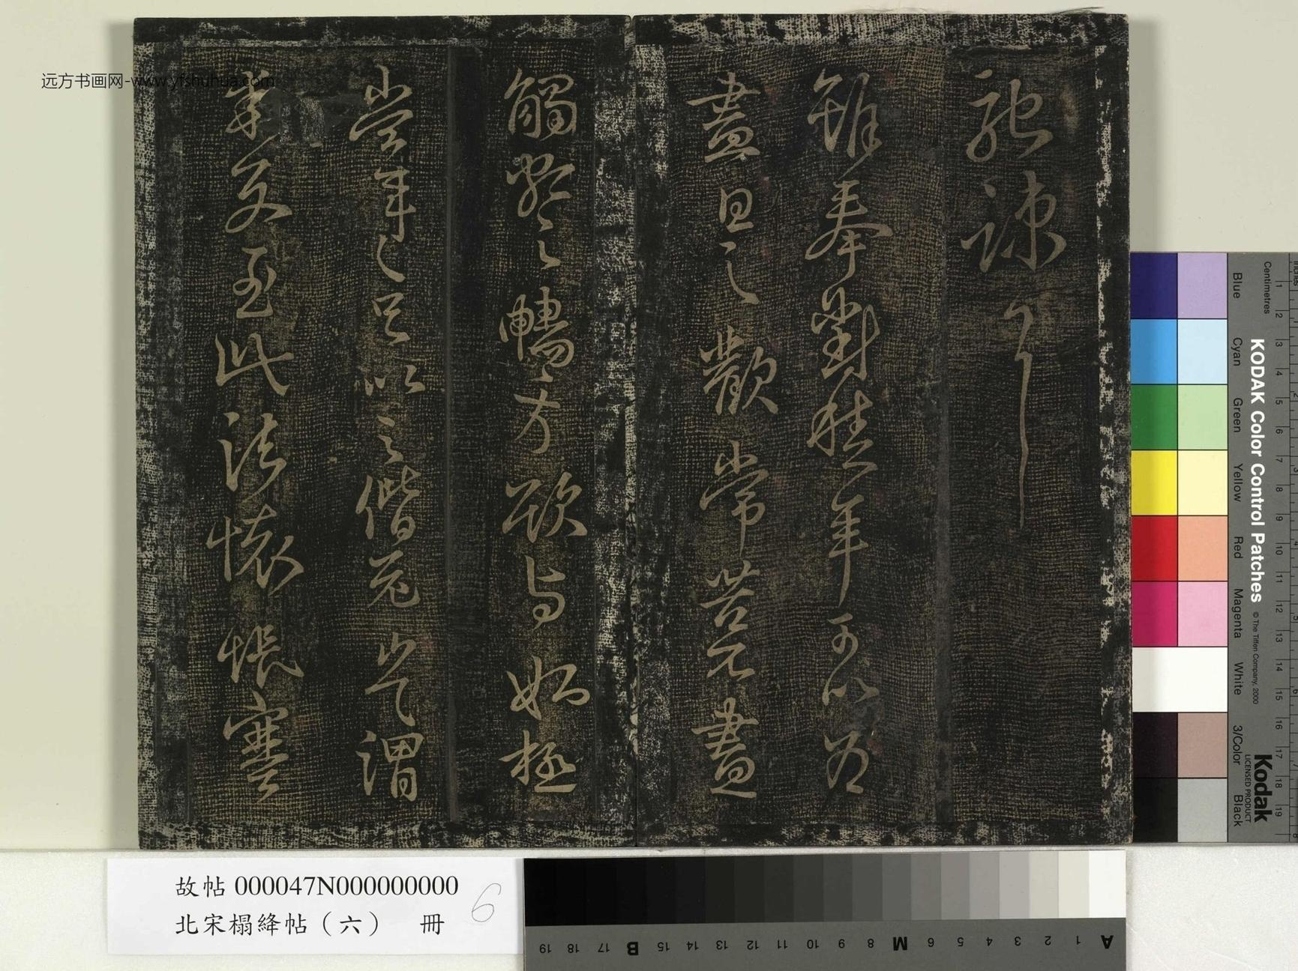 雖奉對積年可以為
盡日之歡常苦不盡
觸類之暢方欲與姊極
當年之足以之偕老豈謂
乖別至此諸懷悵塞
远方书画网-www.yfshuhua.com
故帖 000047N000000000
北宋榻絳帖（六） 冊
6
KODAK Color Control Patches
© The Tiffen Company, 2000
Kodak
LICENSED PRODUCT
Centimetres
Blue
Cyan
Green
Yellow
Red
Magenta
White
3/Color
Black
1 2 3 4 5 6 7 8 9 10 11 12 13 14 15 16 17 18 19
A 1 2 3 4 5 6 M 8 9 10 11 12 13 14 15 B 17 18 19